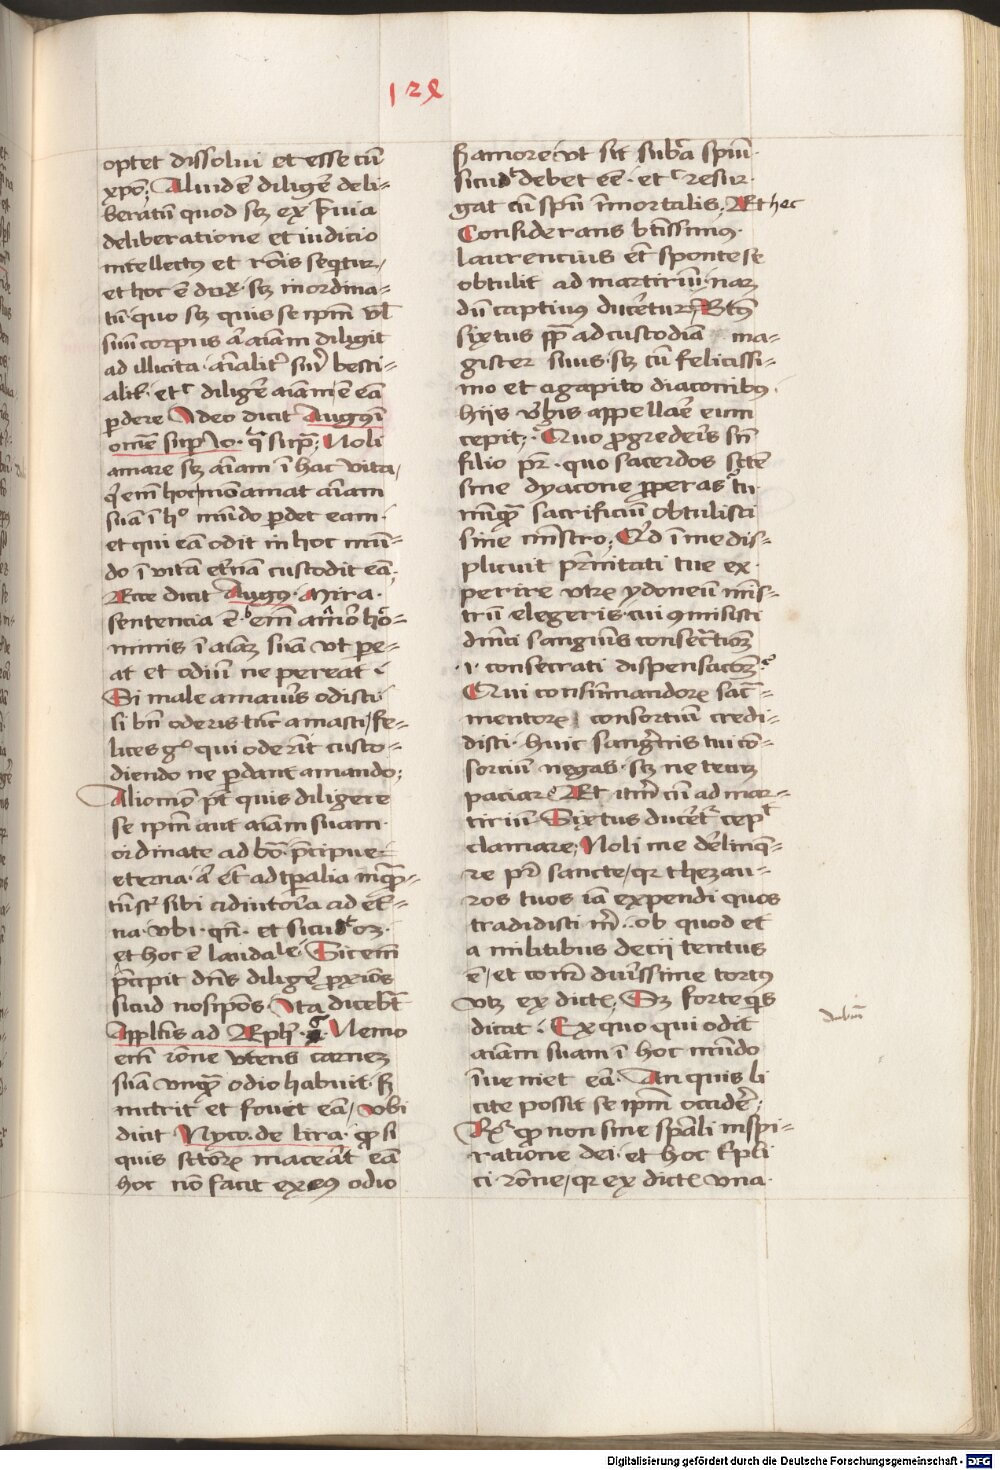 128
optet dissolui et esse cū
xpō; Aliud ē diligē deli-
beratū quod sꝫ ex p̄uia
deliberatione et iudicio
intellectꝰ et rōis seqtur /
et hoc ē dux sꝫ inordina-
tū quo sꝫ quis se ipm̄ vl̄
suū corpus aīam diligit
ad illicita aīalit᷑ besti-
alit᷑ diligē aīam ē eā
ꝑdere Ideo dicit Augꝰ ī
omē suꝑ Io. Noli
amare sꝫ aīam ī hac vita /
em̄ hoc mō amat aīam
suā ī hº mūdo ꝑdet eam
et qui eā odit in hoc mū-
do ī vitā et̄nā custodit eā;
Ecce dicit Augꝰ Mira
sentencia ē em̄ amor hō-
minis ī aīaꝫ suā vt pe-
at et odiū ne pereat
Si male amaueris odisti
si bn̄ oderis tūc amasti / fe-
lices gº qui oderūt custo-
diendo ne ꝑdant amando;
Alio mō pōt quis diligere
se ipm̄ aut aīam suam
ordinate ad bō p̄cipue
eterna ēt ad tꝑalia inquā-
tū st̄ sibi adiutoria ad et̄-
na vbi et sicud oꝫ
et hoc ē laudale. Sic em̄
p̄cipit dn̄s diligē ꝓxiōs
sicud nosipōs. Ita dicebat
Appl̄us ad Eph̄ Nemo
em̄ rōne vtens carneꝫ
suā vnquā odio habuit sꝫ
nutrit et fouet eā / vbi
dicit Nyco. de lira ꝙ si
quis macerat eā
hoc nō facit ex eiꝰ odio
sꝫ amore vt sit subīa spiū
sicud debet eē et resur-
gat cū spū īmortalis; Et hec
Considerans btīssimꝰ
laurencius ēt sponte se
obtulit ad martiriū naꝫ
dū captiuus duceretur Btꝰ
sixtus pp̄ ad custodiā ma-
gister suus sꝫ cū felicissi-
mo et agapito diaconibꝰ
hijs v̄bis appellare eum
cepit; Quo ꝓgrederis sn̄
filio pr̄ quo sacerdos scte
sine dyacone ꝓꝑas tu
nūquā sacrificiū obtulisti
sine mistro; Qd ī me dis-
plicuit pr̄nitati tue ex-
perire vtrꝫ ydoneū mis-
trū elegeris cui ꝯmisisti
dn̄ici sanguīs consecratioꝫ
.i. consecrati dispensacōꝫ
Qui consūmandorꝫ sacr̄a-
mentorꝫ consortiū credi-
disti huic sanguīis tui cō-
sortiū negas sꝫ ne tecuꝫ
paciar Et itm̄ cū ad mar-
tiriū Sixtus ducēt᷑ cepit
clamare; Noli me dērelinq̄-
re pr̄ sancte / qr thezau-
ros tuos iā expendi quos
tradidisti m̄ ob quod et
a militibus decij tentus
ē / et com̄ duriss̄ime tortꝰ
vtꝫ ex dictꝭ; Sꝫ forte qs
dicat Ex quo qui odit
aīam suam ī hoc mūdo
īueniet eā An quis li
cite possit se ipm̄ occidē;
Rꝫ ꝙ non sine spāli inspi-
ratione dei et hoc tꝑli
ci rōne / qr ex dictꝭ vna
dubiū
Digitalisierung gefördert durch die Deutsche Forschungsgemeinschaft - DFG